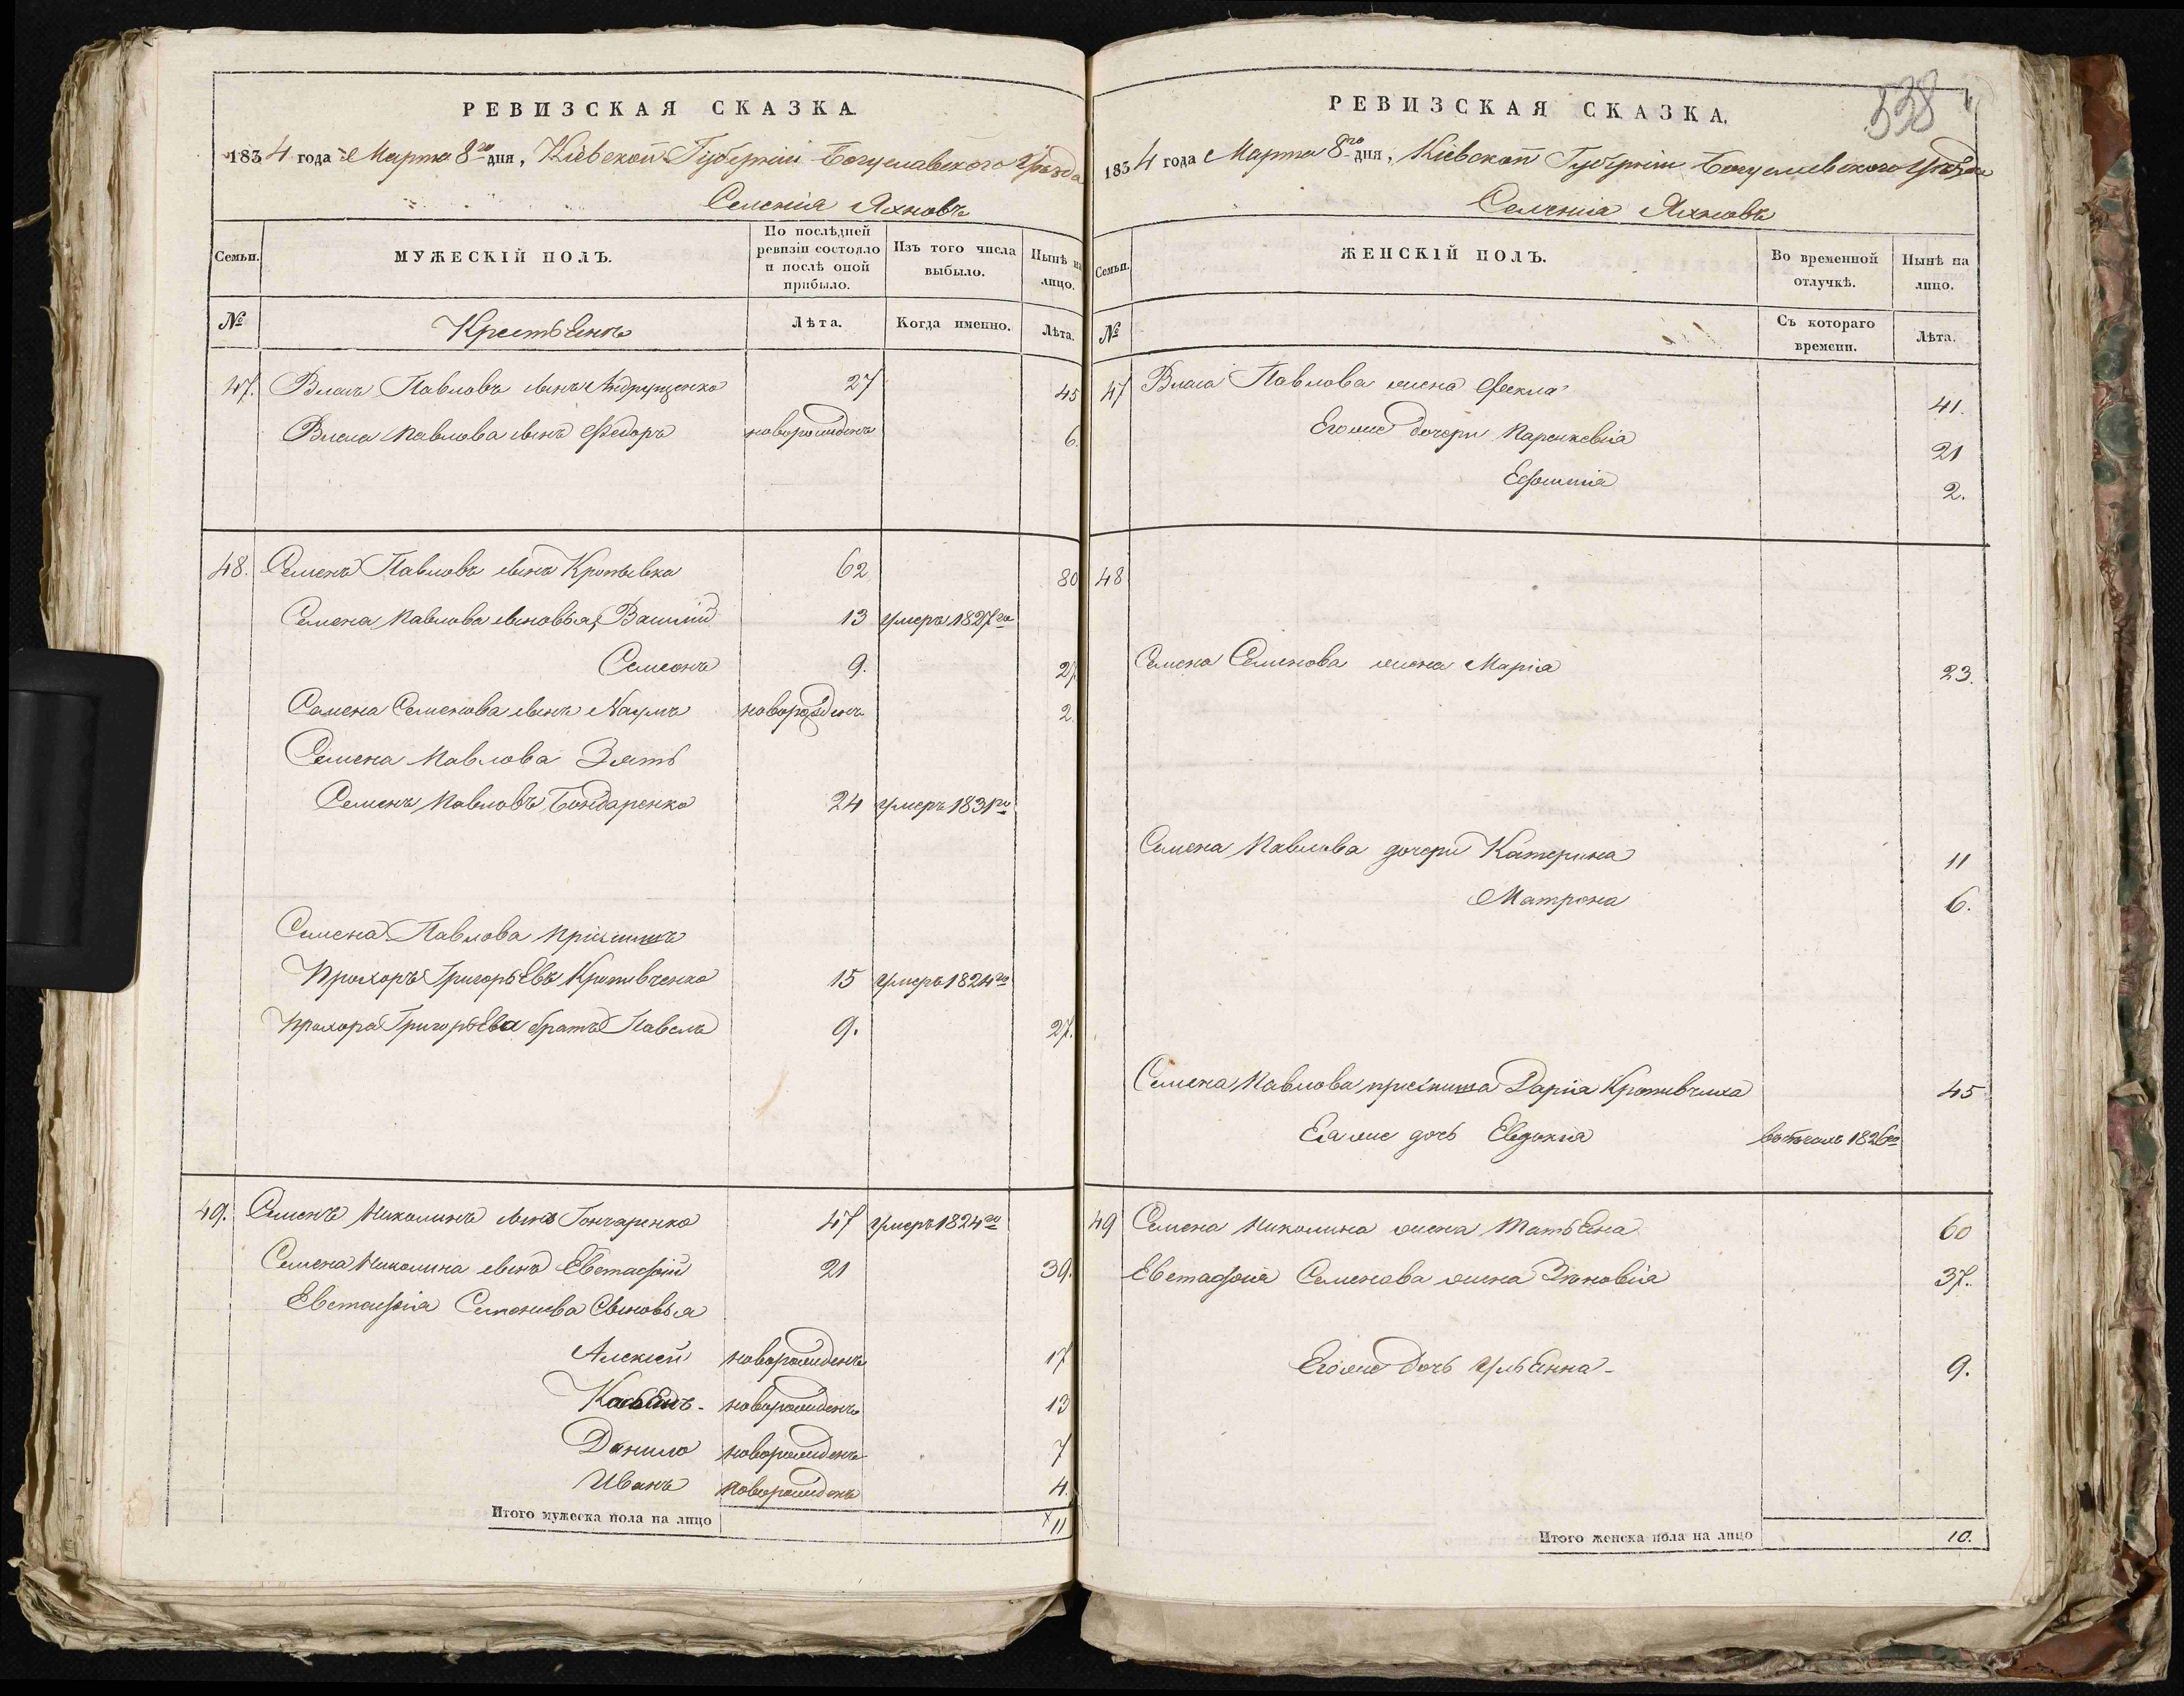 РЕВИЗСКАЯ СКАЗКА.
1834 года Марта 8го дня, Кіевской Губерніи Богуславского Уѣзда
Селенія Яхновъ
Семьи.
МУЖЕСКІЙ ПОЛЪ.
По послѣдней ревизіи состояло и послѣ оной прибыло.
Изъ того числа выбыло.
Нынѣ на лицо.
№
Крестьянъ
Лѣта.
Когда именно.
Лѣта.
47. Власъ Павловъ сынъ Андрущенко 27 45
Власа Павлова сынъ Федоръ новорожденъ 6.
48. Семенъ Павловъ сынъ Кропывка 62 80
Семена Павлова сыновья, Василій 13 умеръ 1827го
Семенъ 9. 27
Семена Семенова сынъ Наумъ новорожденъ 2
Семена Павлова Зять
Семенъ Павловъ Бондаренко 24 умеръ 1831го
Семена Павлова
Прохоръ Григорьевъ Кропивченко 15 умеръ 1824го
Прохора Григорьева братъ Павелъ 9. 27.
49. Семенъ Николинъ сынъ Гончаренко 47 умеръ 1824го
Семена Николина сынъ Евстафій 21 39.
Евстафія Семенова Сыновья
Алексѣй новорожденъ 17
Касьянъ - новорожденъ 13
Данило новорожденъ 7
Иванъ новорожденъ 4.
Итого мужеска пола на лицо 11
538
РЕВИЗСКАЯ СКАЗКА.
1834 года Марта 8го дня, Кіевской Губерніи Богуславского Уѣзда
Селенія Яхновъ
Семьи.
ЖЕНСКІЙ ПОЛЪ.
Во временной отлучкѣ.
Нынѣ на лицо.
№
Съ котораго времени.
Лѣта.
47 Власа Павлова жена Фекла 41.
Его же дочери Параскевія 21
Ефимія 2.
48
Семена Семенова жена Марія 23.
Семена Павлова дочери Катерина 11
Матрона 6.
Семена Павлова Дарія Кропивчиха 45
Ея же дочь Евдокія 1826го
49 Семена Николина жена Татьяна 60
Евстафія Семенова жена Зиновія 37.
Его же дочь Ульянна - 9.
Итого женска пола на лицо 10.